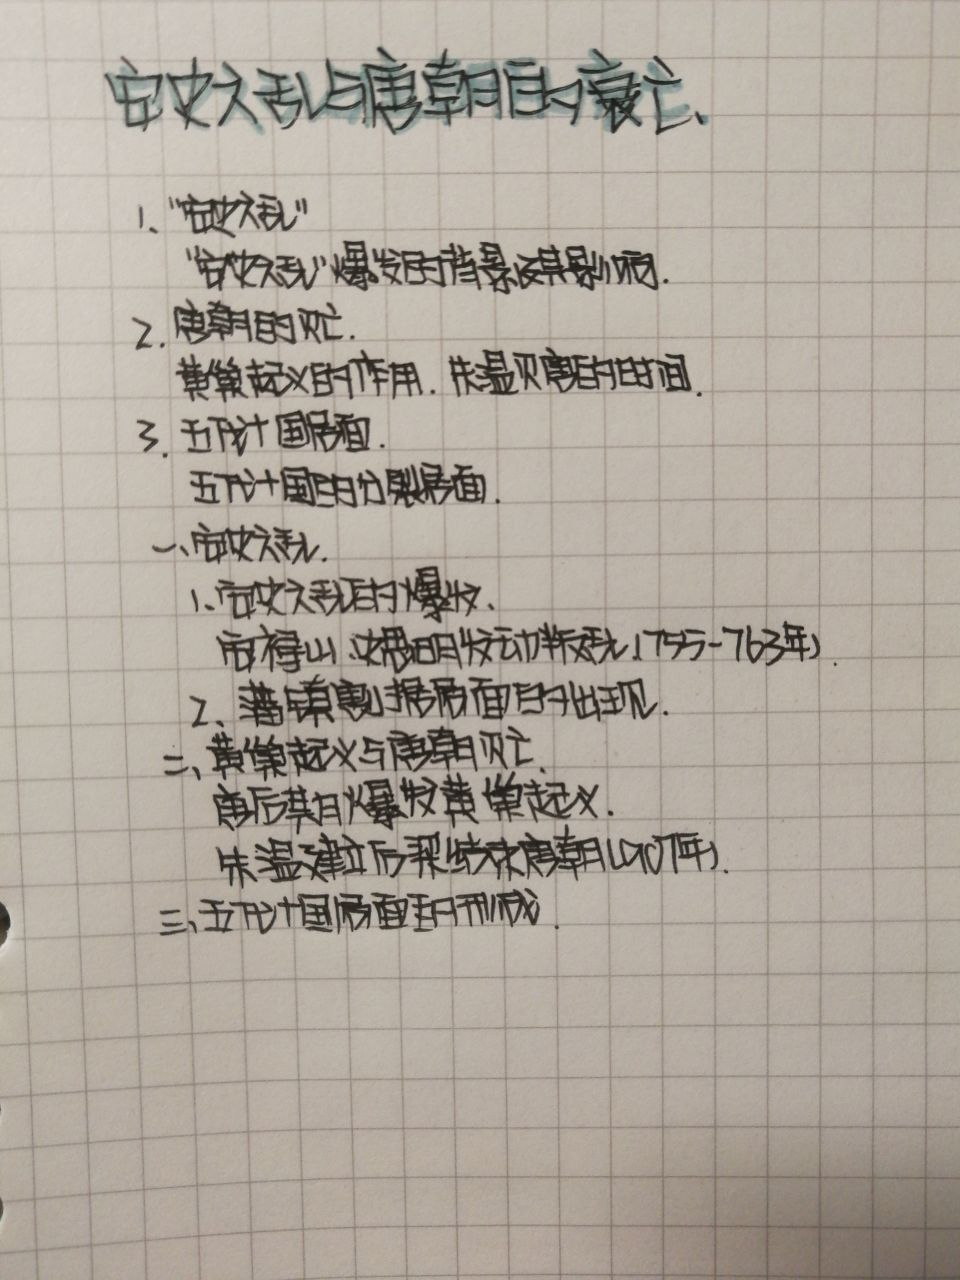 安史之乱与唐朝的衰亡、
1、"安史之乱"
"安史之乱"爆发的背景及其影响.
2.唐朝的灭亡.
黄巢起义的作用.朱温灭唐的时间.
3.五代十国局面.
五代十国的分裂局面.
一、安史之乱.
1、安史之乱的爆发、
安禄山、史思明发动叛乱(755-763年).
2、藩镇割据局面的出现.
二、黄巢起义与唐朝灭亡.
唐后期爆发黄巢起义.
朱温建立后梁结束唐朝(907年).
三、五代十国局面的形成.